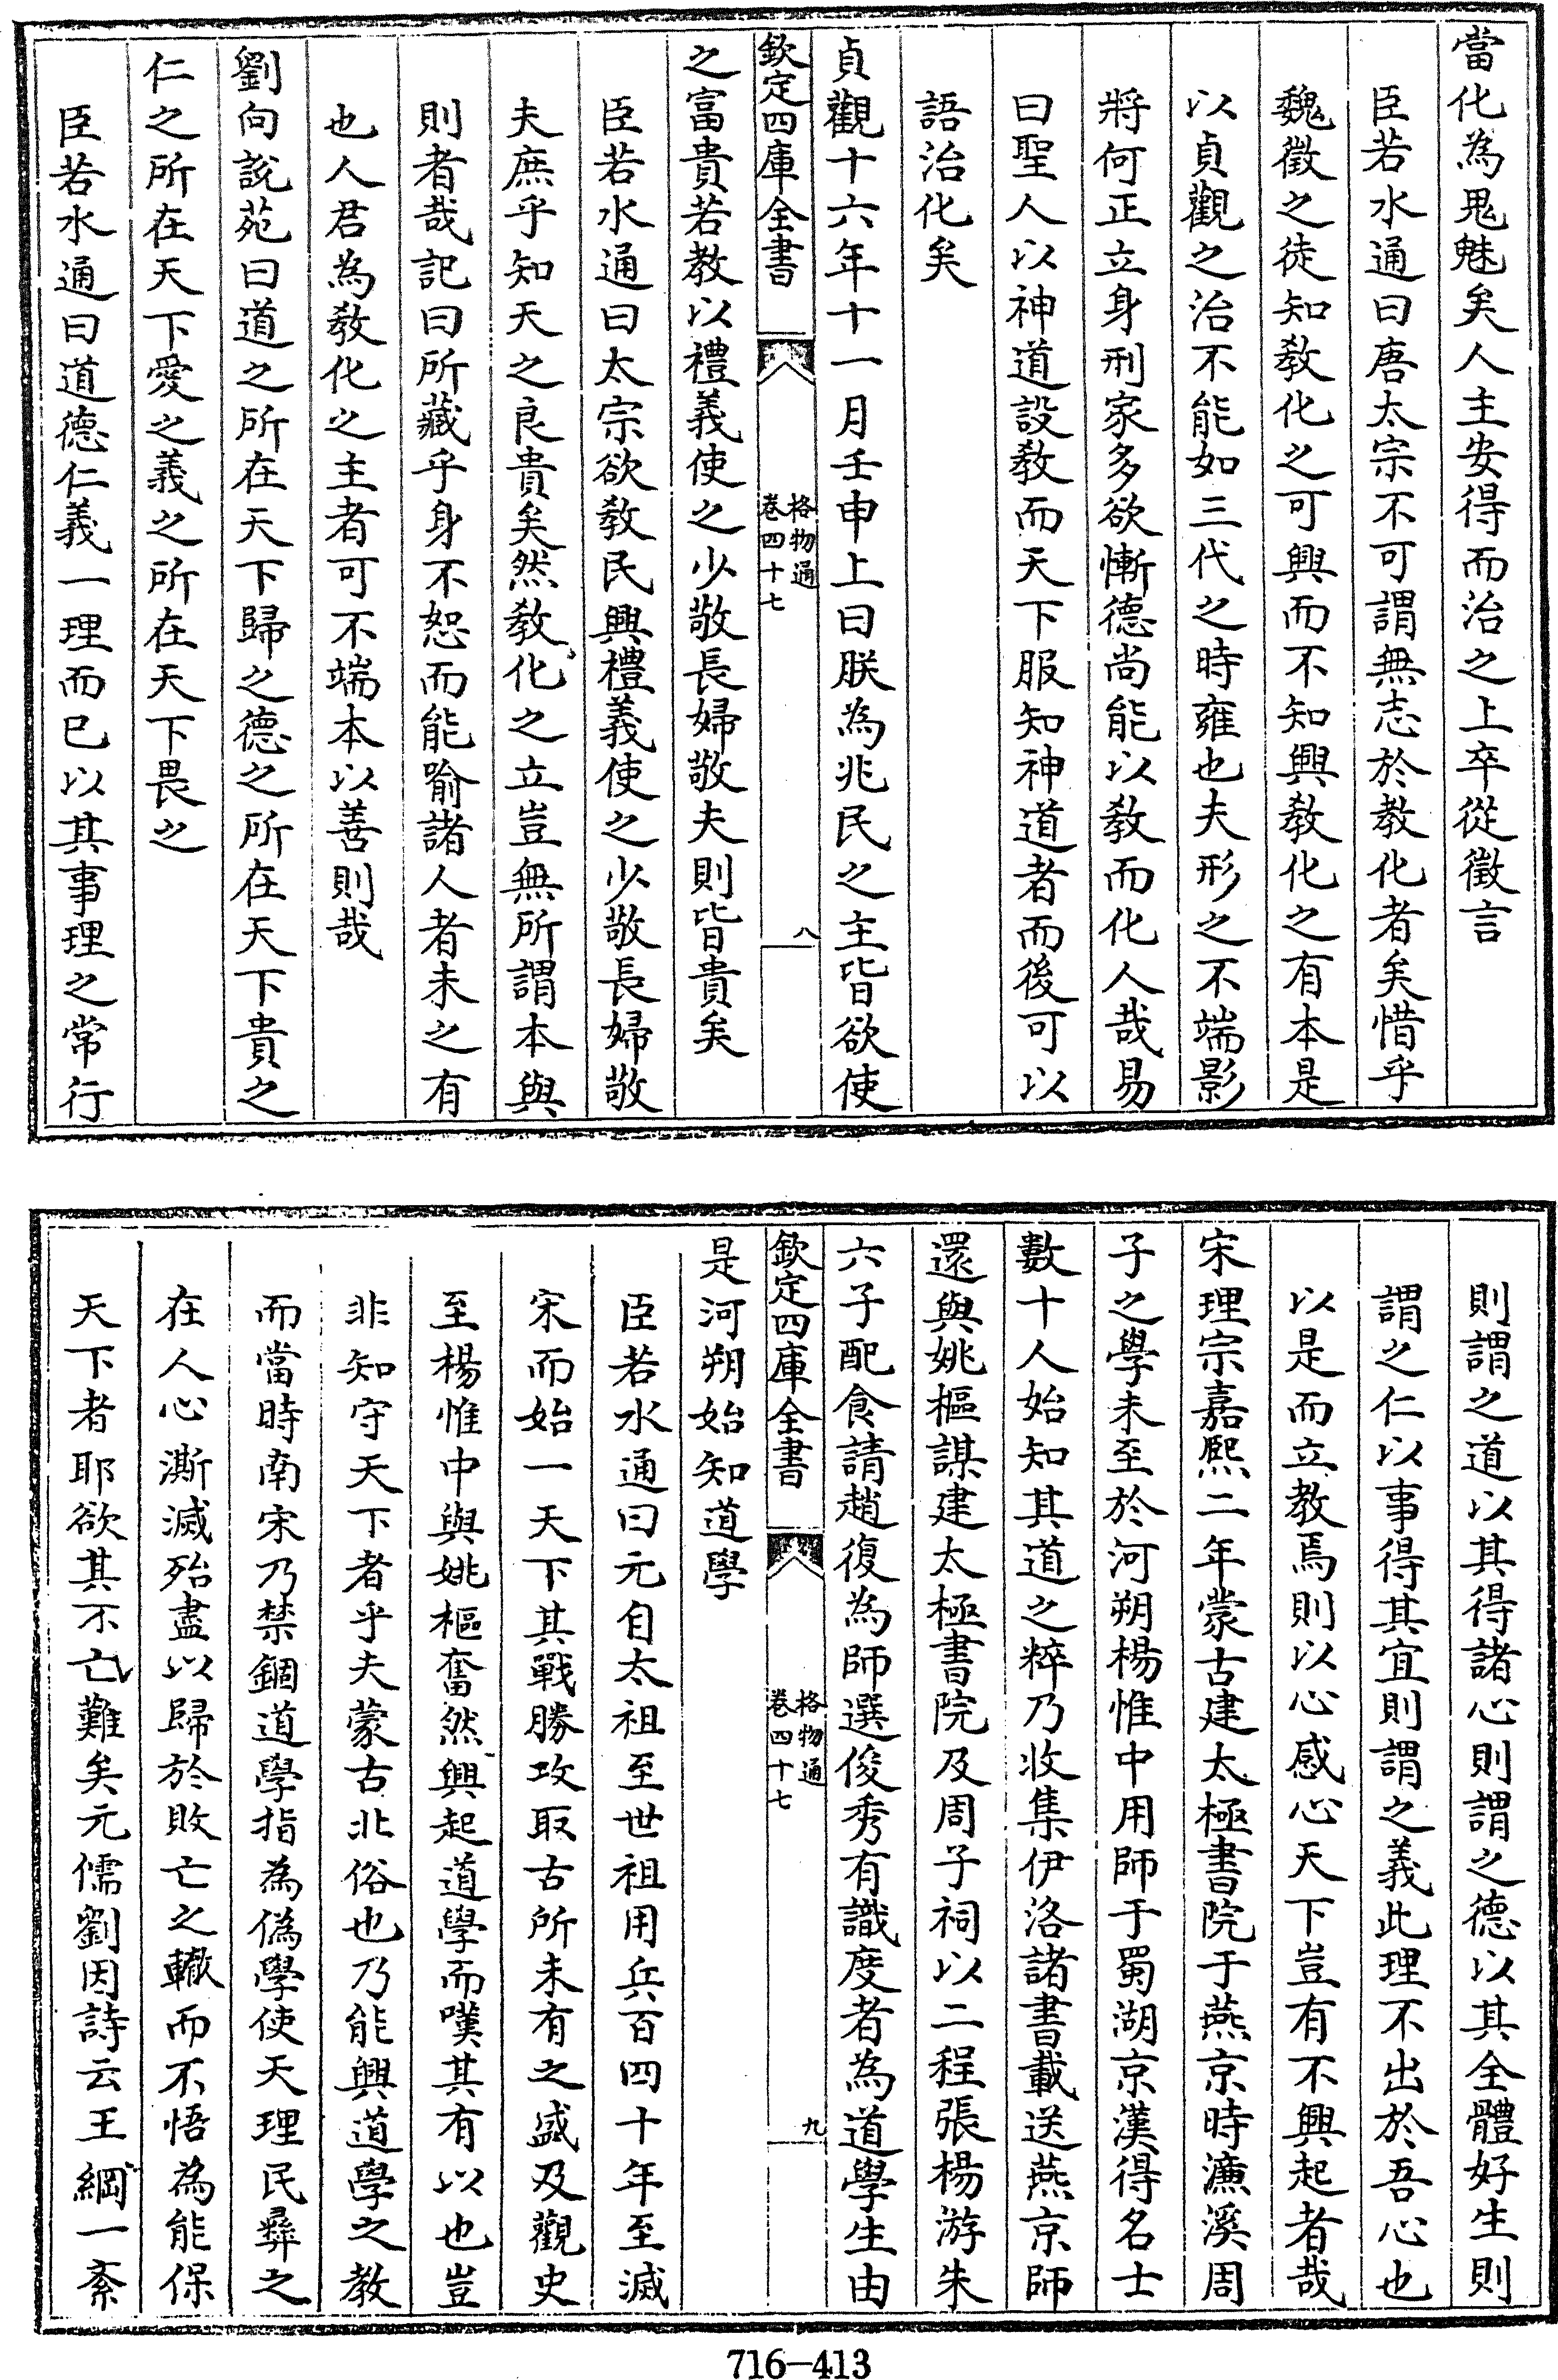 當化為鬼魅矣人主安得而治之上卒從徵言
臣若水通曰唐太宗不可謂無志於教化者矣惜乎
魏徵之徒知教化之可興而不知興教化之有本是
以貞觀之治不能如三代之時雍也夫形之不端影
將何正立身刑家多欲慚德尚能以教而化人哉易
曰聖人以神道設教而天下服知神道者而後可以
語治化矣
貞觀十六年十一月壬申上曰朕為兆民之主皆欲使
欽定四庫全書
格物通
卷四十七
八
之富貴若教以禮義使之少敬長婦敬夫則皆貴矣
臣若水通曰太宗欲教民興禮義使之少敬長婦敬
夫庶乎知天之良貴矣然教化之立豈無所謂本與
則者哉記曰所藏乎身不恕而能喻諸人者未之有
也人君為教化之主者可不端本以善則哉
劉向說苑曰道之所在天下歸之德之所在天下貴之
仁之所在天下愛之義之所在天下畏之
臣若水通曰道德仁義一理而已以其事理之常行
則謂之道以其得諸心則謂之德以其全體好生則
謂之仁以事得其宜則謂之義此理不出於吾心也
以是而立教焉則以心感心天下豈有不興起者哉
宋理宗嘉熙二年蒙古建太極書院于燕京時濂溪周
子之學未至於河朔楊惟中用師于蜀湖京漢得名士
數十人始知其道之粹乃收集伊洛諸書載送燕京師
還與姚樞謀建太極書院及周子祠以二程張楊游朱
六子配食請趙復為師選俊秀有識度者為道學生由
欽定四庫全書
格物通
卷四十七
九
是河朔始知道學
臣若水通曰元自太祖至世祖用兵百四十年至滅
宋而始一天下其戰勝攻取古所未有之盛及觀史
至楊惟中與姚樞奮然興起道學而嘆其有以也豈
非知守天下者乎夫蒙古北俗也乃能興道學之教
而當時南宋乃禁錮道學指為偽學使天理民彝之
在人心澌滅殆盡以歸於敗亡之轍而不悟為能保
天下者耶欲其不亡難矣元儒劉因詩云王綱一紊
716-413